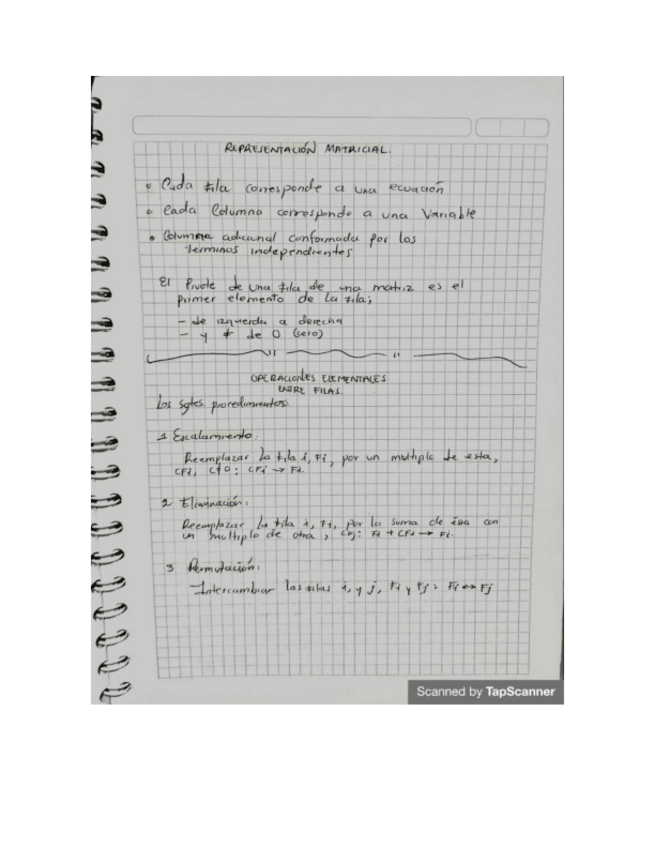 REPRESENTACIÓN MATRICIAL.
• Cada fila corresponde a una ecuación
• Cada Columna corresponde a una Variable
• Columna adicional conformada por los
términos independientes
El Pivote de una fila de una matriz es el
primer elemento de la fila;
- de izquierda a derecha
- y ≠ de 0 (cero)
OPERACIONES ELEMENTALES
ENTRE FILAS.
Los sgtes procedimientos:
1 Escalamiento:
Reemplazar la fila i, Fi, por un multiplo de esta,
CFi, C≠0: CFi → Fi.
2 Eliminación.
Reemplazar la fila i, Fi, por la suma de esa con
un multiplo de otra, CFj: Fi + CFj → Fi.
3 Permutación:
Intercambiar las filas i, y j, Fi y Fj: Fi ↔ Fj
Scanned by TapScanner